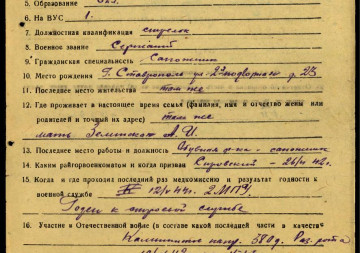 5. Образование
6. На ВУС 1.
7. Должностная квалификация стрелок
8. Военное звание Сержант
9. Гражданская специальность Сапожник
10. Место рождения г. Ставрополь ул. 2я подворная д. 23
11. Последнее место жительства там же
12. Где проживает в настоящее время семья (фамилия, имя и отчество жены или
родителей и точный их адрес) там же
мать А. И.
13. Последнее место работы и должность Обувная ф-ка - сапожник
14. Каким райгорвоенкоматом и когда призван 42 г.
15. Когда и где проходил последний раз медкомиссию и результат годности к
военной службе 12/V 44 г.
Годен к строевой службе
16. Участие в Отечественной войне (в составе какой последней части в качестве